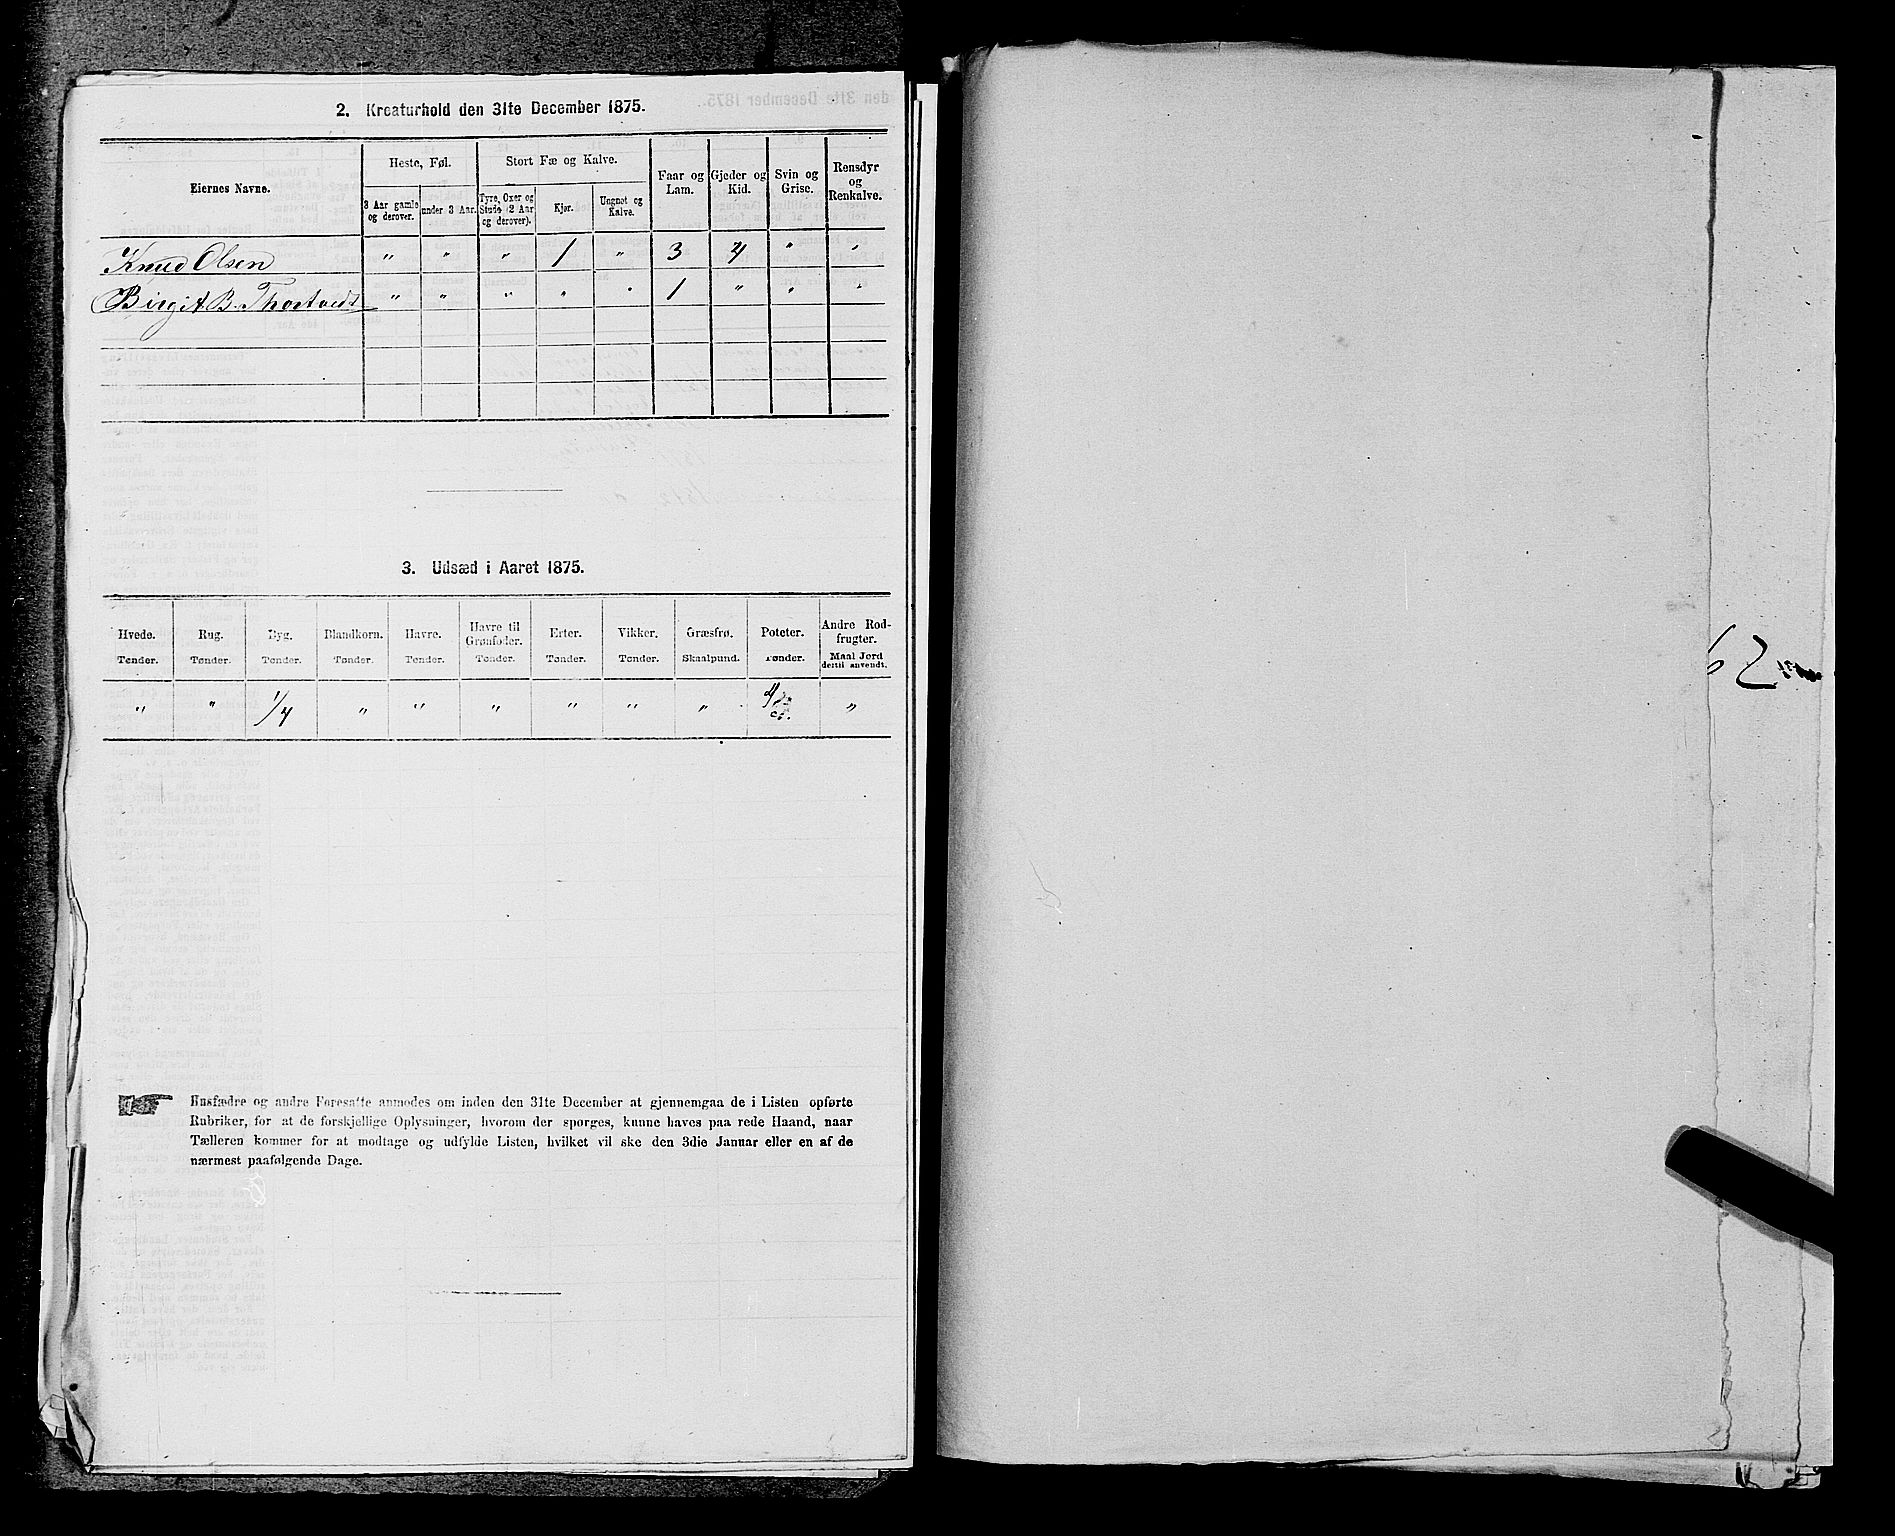 2. Kreaturhold den 31te December 1875.
Eiernes Navne.
Heste, Føl.
Stort Fæ og Kalve.
Faar og Lam.
Gjeder og Kid.
Svin og Grise.
Rensdyr og Renkalve.
3 Aar gamle og derover.
under 3 Aar.
Tyre, Oxer og Stude (2 Aar og derover).
Kjør.
Ungnøt og Kalve.
Knud Olsen " " " 1 " 3 4 " "
Birgit B. Thortvedt " " " " " 1 " " "
3. Udsæd i Aaret 1875.
Hvede. Rug. Byg. Blandkorn. Havre. Havre til Grønfoder. Erter. Vikker. Græsfrø. Poteter. Andre Rodfrugter.
Tønder. Tønder. Tønder. Tønder. Tønder. Tønder. Tønder. Tønder. Skaalpund. Tønder. Maal Jord dertil anvendt.
" " 1/4 " " " " " " "
Husfædre og andre Foresatte anmodes om inden den 31te December at gjennemgaa de i Listen opførte
Rubriker, for at de forskjellige Oplysninger, hvorom der spørges, kunne haves paa rede Haand, naar
Tælleren kommer for at modtage og udfylde Listen, hvilket vil ske den 3die Januar eller en af de
nærmest paafølgende Dage.